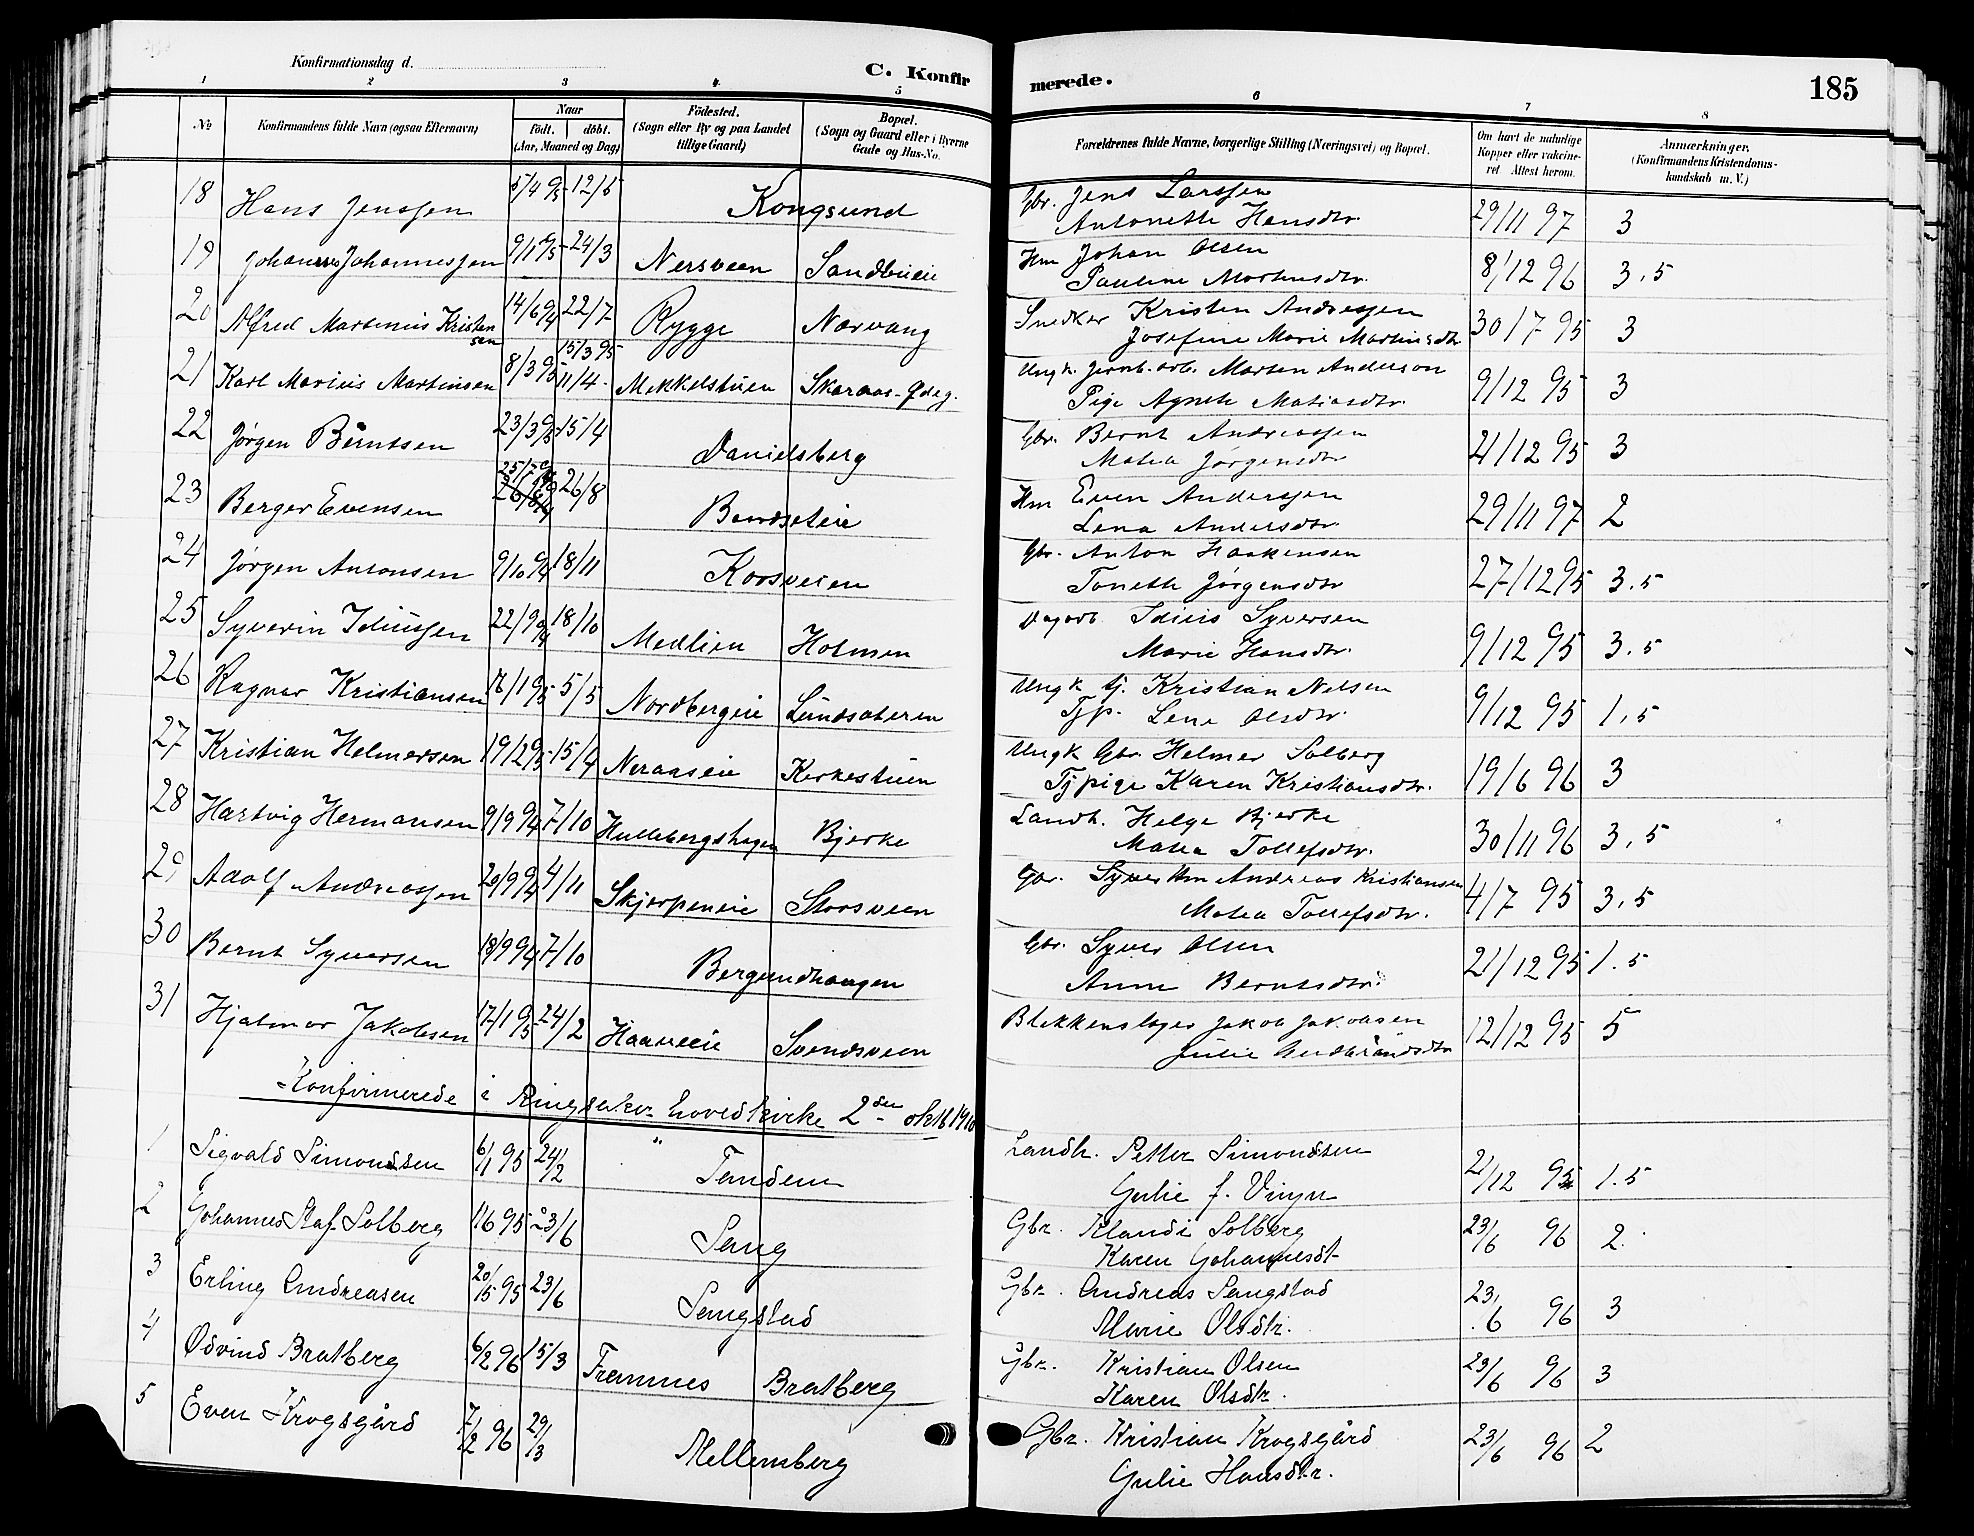 Konfirmationsdag d.
C. Konfir merede. 185
1 2 3 4 5 6 7 8
No
Konfirmandens fulde Navn (ogsaa Efternavn)
Naar
födt. döbt.
(Aar, Maaned og Dag)
Födested.
(Sogn eller By og paa Landet
tillige Gaard)
Bopæl.
(Sogn og Gaard eller i Byerne
Gade og Hus-No.
Forældrenes fulde Navne, borgerlige Stilling (Næringsvei) og Bopæl.
Om havt de naturlige
Kopper eller vakcine-
ret Attest herom.
Anmærkninger.
(Konfirmandens Kristendoms-
kundskab m. V.)
18 Hans Jenssen 5/4 95 12/5 Kongsund Gbr. Jens Larssen 29/11 97 3
Antonette Hansdtr.
19 Johannes Johannessen 9/1 95 24/3 Nersveen Sandbueie Hm Johan Olsen 8/12 96 3,5
Pauline Mortensdtr.
20 Alfred Martinius Kristen 14/6 94 22/7 Rygge Narvang Snedker Kristen Andressen 30/7 95 3
sen Josefine Marie Martinsdtr
21 Karl Marius Martinsen 8/3 95 15/3 95 11/4 Mekkelstuen Skaraas-Ødeg. Ungk. jernb. arb. Morten Anderson 9/12 95 3
Pige Agnete Matiasdtr.
22 Jørgen Berntsen 23/3 95 15/4 Danielsberg Gbr. Bernt Andreassen 21/12 95 3
Matea Jørgensdtr
23 Berger Evensen 26/8 Bendseteie Hm Even Anderssen 29/11 97 2
Lena Andersdtr.
24 Jørgen Antonsen 9/10 94 18/11 Korsveien Gbr. Anton Haakensen 27/12 95 3.5
Tonette Jørgensdtr
25 Syverin Idiussen 22/9 94 18/10 Medlien Holmen Dagarb. Idius Syversen 9/12 95 3.5
Marie Hansdtr.
26 Ragnar Kristiansen 16/1 95 5/5 Nordbergeie Lundsæteren Ungk tj. Kristian Nelsen 9/12 95 1,5
Tjp. Lene Olsdtr.
27 Kristian Helmersen 19/2 95 15/4 Neraaseie Kirkestuen Ungk Gbr. Helmer Solberg 19/6 96 3
Tjpige Karen Kristiansdtr.
28 Hartvig Hermansen 9/9 94 7/10 Hullebergshagen Bjerke Landh. Helge Bjerke 30/11 96 3,5
Matea Tollefsdtr.
29 Adolf Andreassen 20/9 94 4/11 Skjerpeneie Storsveen Gbr. Syver Hm Andreas Kristiansen 4/7 95 3,5
Matea Tollefsdtr.
30 Bernt Syversen 18/9 94 7/10 Bergundhaugen Gbr. Syver Olsen 21/12 95 1.5
Anne Berntsdtr.
31 Hjalmar Jakobsen 17/1 95 24/2 Haaveeie Svendsveen Blikkenslager Jakob Jakobsen 12/12 95 5
Julie Gudbrandsdtr
Konfirmerede i Ringsaker hovedkirke 2den oktb 1910
1 Sigvald Simondsen 6/1 95 24/2 " Tandem Landh. Petter Simondsen 21/12 95 1.5
Gulie f. Vinju
2 Johannes Olaf Solberg 1/6 95 23/6 Sang Gbr. Klaudi Solberg 23/6 96 2.
Karen Johannesdt
3 Erling Andreasen 20/5 95 23/6 Sangstad Gbr. Andreas Sangstad 23/6 96 3
Marie Olsdtr.
4 Ødvind Bratberg 6/2 96 15/3 Framnes Bratberg Gbr. Kristian Olsen 23/6 96 3
Karen Olsdtr.
5 Even Krogsgård 7/2 96 29/3 Mellemberg Gbr. Kristian Krogsgård 23/6 96 2
Gulie Hansdtr.